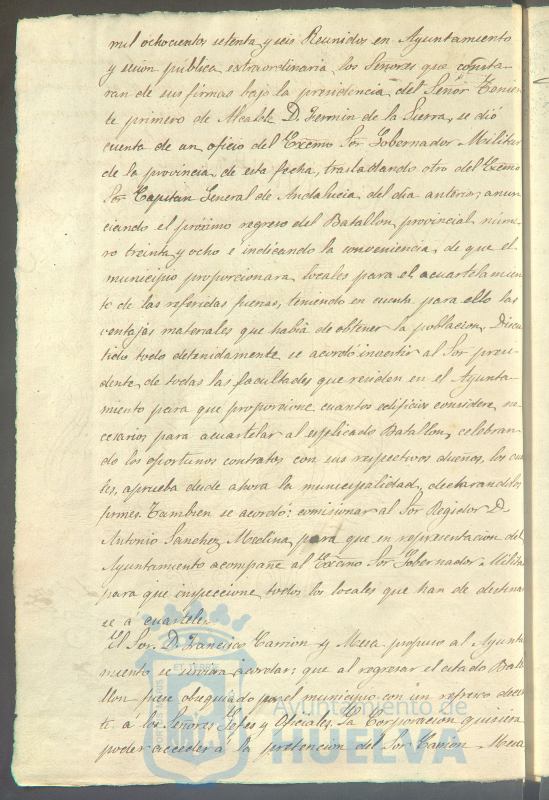 mil ochocientos setenta y seis Reunidos en Ayuntamiento
y sesion pública extraordinaria los Señores que consta-
ran de sus firmas bajo la presidencia del Señor Tenien-
te primero de Alcalde D. Fermin de la Sierra, se dió
cuenta de un oficio del Excmo Sor Gobernador Militar
de la provincia de esta fecha, trasladando otro del Excmo
Sor Capitan General de Andalucia del dia anterior, anun-
ciando el próximo regreso del Batallon, provincial núme-
ro treinta y ocho é indicando la conveniencia, de que el
municipio proporcionara, locales para el acuartelamien-
to de las referidas fuerzas, teniendo en cuenta para ello las
ventajas materiales que habia de obtener la poblacion. Discu-
tido todo detenidamente se acordó investir al Sor presi-
dente, de todas las facultades que residen en el Ayunta-
miento para que proporcione cuantos edificios considere, ne-
cesarios para acuartelar al esplicado Batallon, celebran-
do los oportunos contratos con sus respectivos dueños, los cua-
les, aprueba desde ahora la municipalidad, declarandolos
firmes. Tambien se acordó: comisionar al Sor Regidor D.
Antonio Sanchez Medina, para que en representacion del
Ayuntamiento acompañe al Excmo Sor Gobernador Milita
para que inspeccione, todos los locales que han de destinar
se á cuarteles.
El Sor. D. Francisco Carrion y Mesa propuso al Ayunta
miento se sirviera acordar; que al regresar el citado Bata-
llon fuese obsequiado por el municipio con un refresco
á los Señores Gefes y Oficiales. La Corporacion
poder acceder á la pretencion del Sor Carrion Mesa
Ayuntamiento de
HUELVA